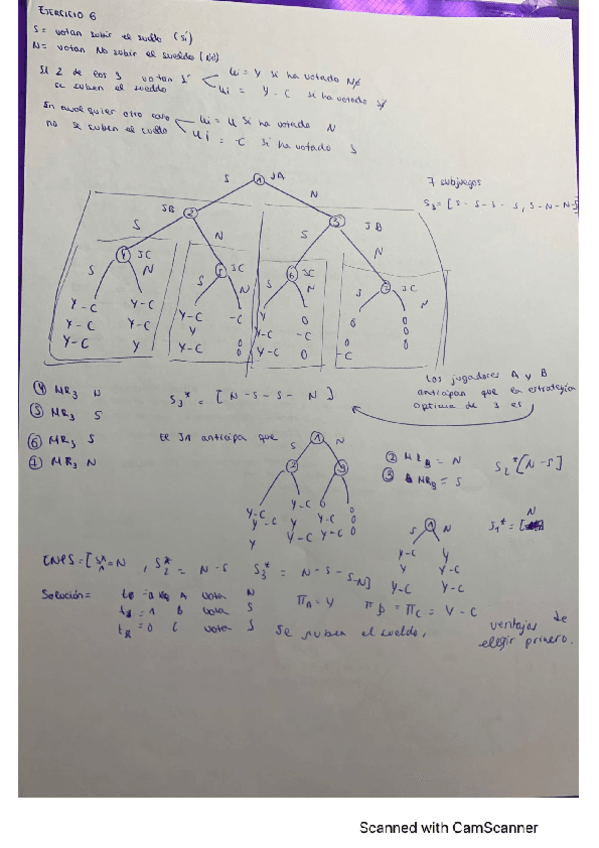 EJERCICIO 6
S = votan subir el sueldo (Sí)
N = votan No subir el sueldo (No)
Si 2 de los 3 votan S
se suben el sueldo
ui = Y si ha votado No
ui = Y - C si ha votado
En cualquier otro caso
no se suben el sueldo
ui = si ha votado N
ui = -C si ha votado S
7 subjuegos
S3 = [S-S-S-S, S-N-N-S
1 JA
S N
JB 2 3 JB
S N S N
4 JC 5 JC 6 JC 7 JC
S N S N S N S N
Y-C Y-C Y-C -C Y 0 0 0
Y-C Y-C Y 0 Y-C -C 0 0
Y-C Y Y-C 0 Y-C 0 -C 0
4 MR3 N
5 MR3 S
6 MR3 S
7 MR3 N
S3* = [N-S-S-N]
Los jugadores A y B
anticipan que la estrategia
optima de 3 es
El J1 anticipa que
1
S N
2 3
Y-C Y-C Y 0
Y-C Y Y-C 0
Y Y-C Y-C 0
2 MRB = N
3 MRB = S
S2* [N-S]
1
S N
Y-C Y
Y Y-C
Y-C Y-C
S1* = [N
ENPS = [S1* = N, S2* = N-S S3* = N-S-S-N]
Solución = A vota N
B vota S
C vota S
ΠA = Y ΠB = ΠC = Y-C
Se suben el sueldo,
ventajas de
elegir primero.
Scanned with CamScanner